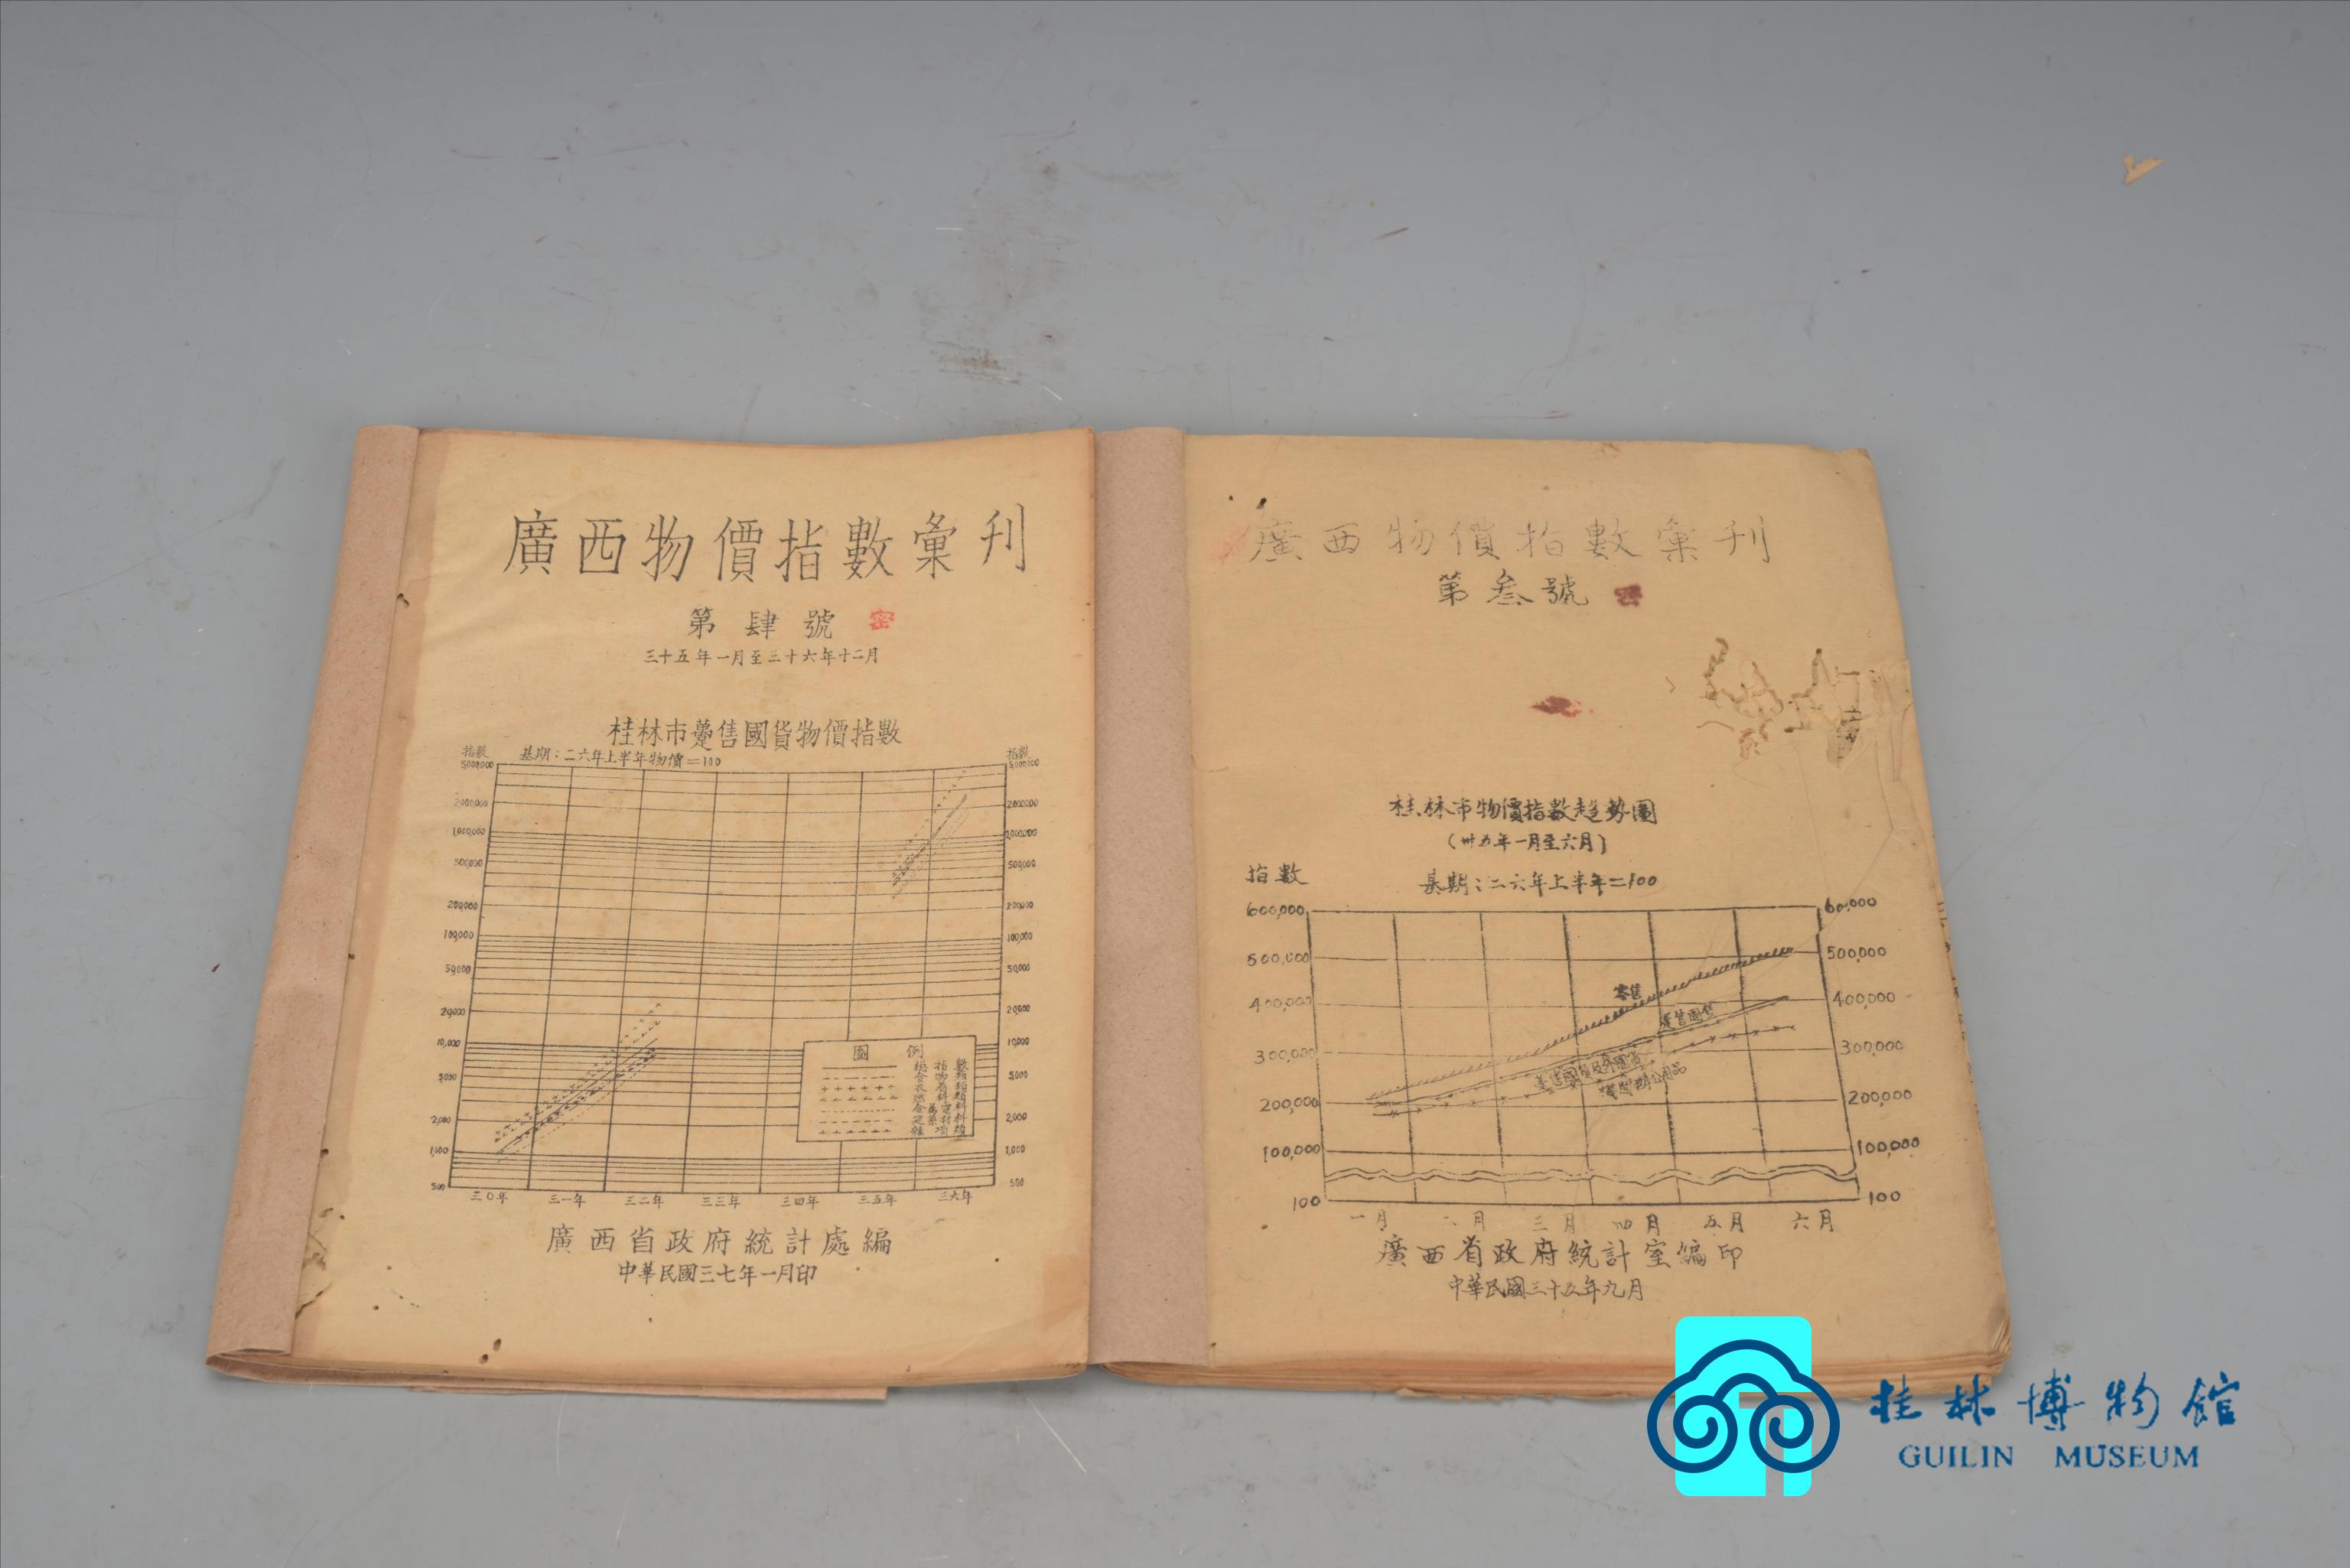 廣西物價指數彙刊
第肆號 密
三十五年一月至三十六年十二月
桂林市躉售國貨物價指數
指數 基期：二六年上半年物價＝100 指數
5000000 5000000
2000,000 2000,000
1,000,000 1,000,000
500,000 500,000
200,000 200,000
100,000 100,000
50,000 50,000
20,000 20,000
10,000 10,000
5,000 5,000
2,000 2,000
1,000 1,000
500 500
圖例
三〇年 三一年 三二年 三三年 三四年 三五年 三六年
廣西省政府統計處編
中華民國三七年一月印
廣西物價指數彙刊
第叁號 密
桂林市物價指數趨勢圖
(卅五年一月至六月)
指數
基期：二六年上半年＝100
600,000 60,000
500,000 500,000
400,000 400,000
300,000 300,000
200,000 200,000
100,000 100,000
100 100
零售
躉售國貨
躉售國貨及外國貨
一月 二月 三月 四月 五月 六月
廣西省政府統計室編印
中華民國三十五年九月
桂林博物館
GUILIN MUSEUM